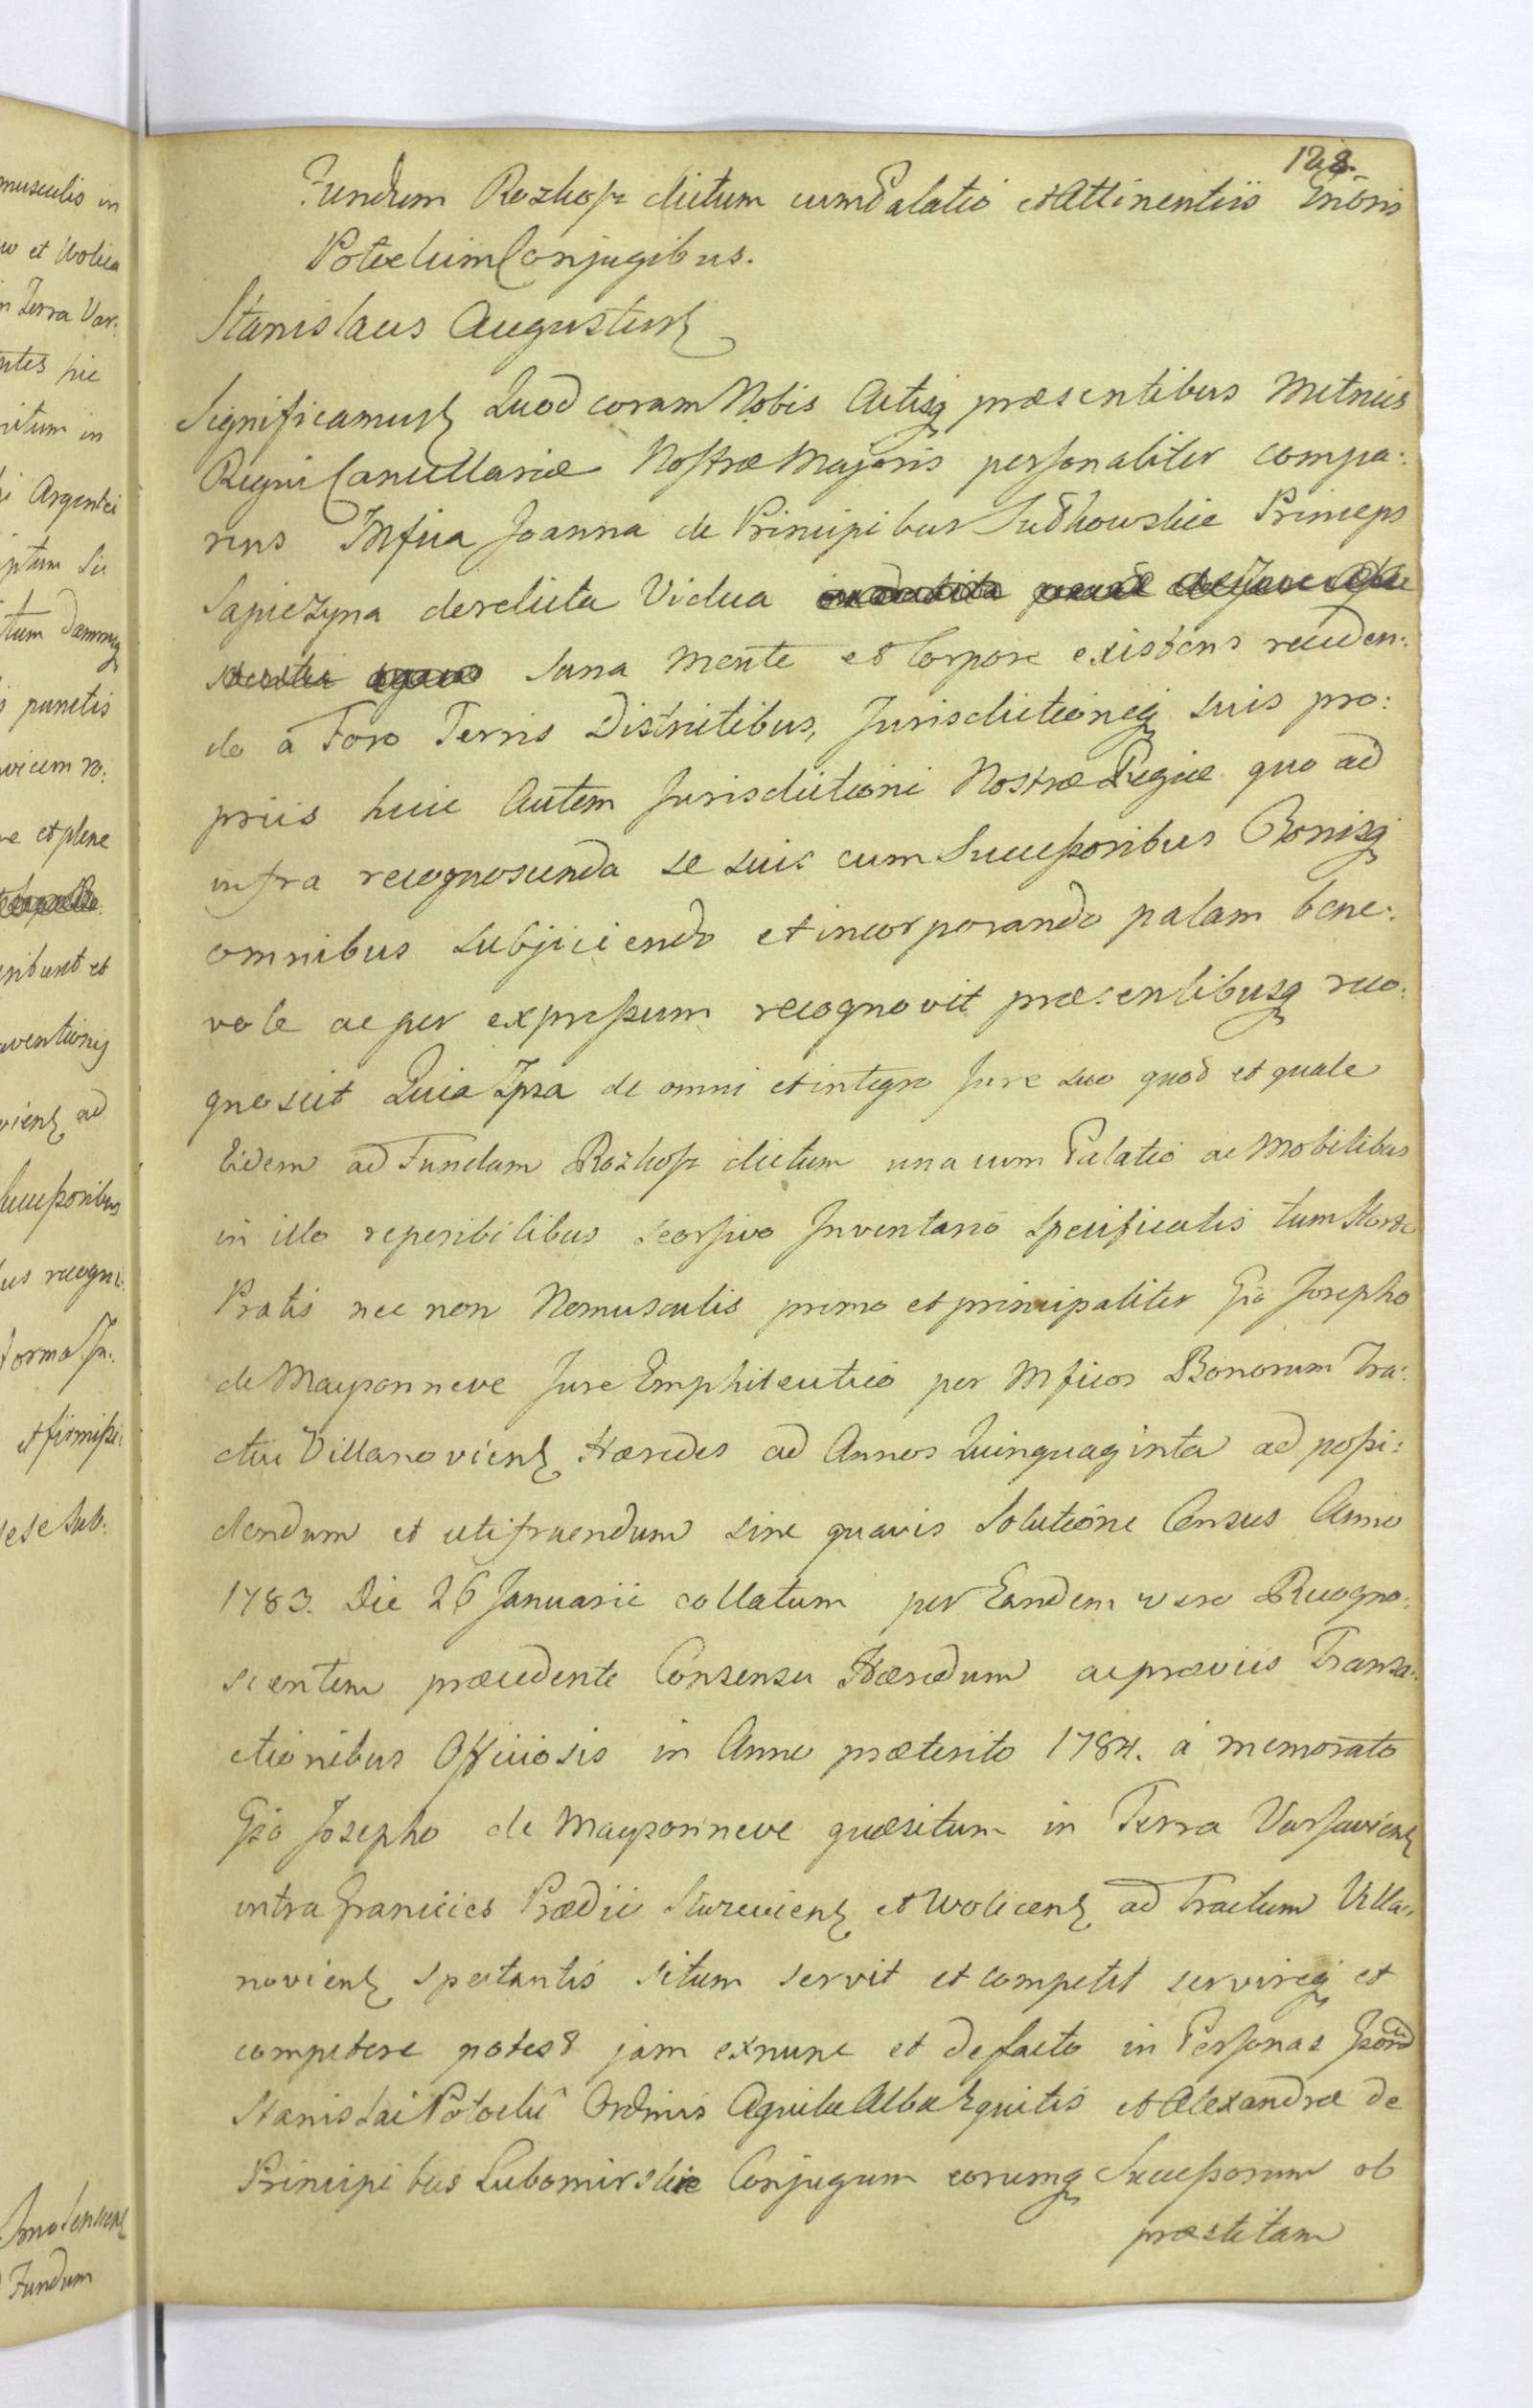 musculis in
w et Wolica
in Terra Var:
ntes hic
ritum in
i Argentei
tum Damnuq
punctis
vicem ro:
re et plene
ribunt et
ventionis
viens ad
Successoribus
us recogni:
forma Ju:
et firmisse:
sese sub:
Smolenscens
Fundum
128.
Fundum Rozkosz dictum cum Palatio et Attinentiis Gnosis
Potockim Conjugibus.
Stanislaus Augustus
Significamus Quod coram Nobis Actisq præsentibus Metrices
Regni Cancellariæ Nostræ Majoris personaliter compa:
rens Mfica Joanna de Principibus Sułkowskie Princeps
Sapiezyna derelicta Vidua
sana mente et Corpore existens receden:
do a Foro Terris Districtibus, Jurisdictioneq suis pro:
priis huic Autem Jurisdictioni Nostræ Regiæ quo ad
infra recognoscenda se suis cum Successoribus Bonisq
omnibus subjiciendo et incorporando palam bene:
vole ac per expressum recognovit præsentibusq reco:
gnoscit Quia Ipsa de omni et integro Jure suo quod et quale
Eidem ad Fundum Rozkosz dictum una cum Palatio ac Mobilibus
in illo reperibilibus seorsivo Inventario specificatis tum Horto
Pratis nec non Nemusculis primo et principaliter Gso Josepho
de Maysonneve Jure Emphiteutico per Mficos Bonorum Tra:
ctus Villanoviens Hæredes ad Annos Quinquaginta ad possi:
dendum et utifruendum sine quavis Solutione Census Anno
1783. Die 26 Januarii collatum per Eandem vero Recogno:
scentem præcedente Consensu Hæredum ac præviis Transa:
ctionibus Officiosis in Anno præterito 1784. a memorato
Gso Josepho de Maysonneve quæsitum in Terra Varsaviens
intra Granicies Prædii Sluzeviens et Wolicens ad Tractum Villa:
noviens spectantis situm servit et competit servireq et
competere potest jam exnunc et defacto in Personas
Stanislai Potocki Ordinis Aquilæ Albæ Equitis et Alexandræ de
Principibus Lubomirskie Conjugum eorumq Successorum ob
præstitam